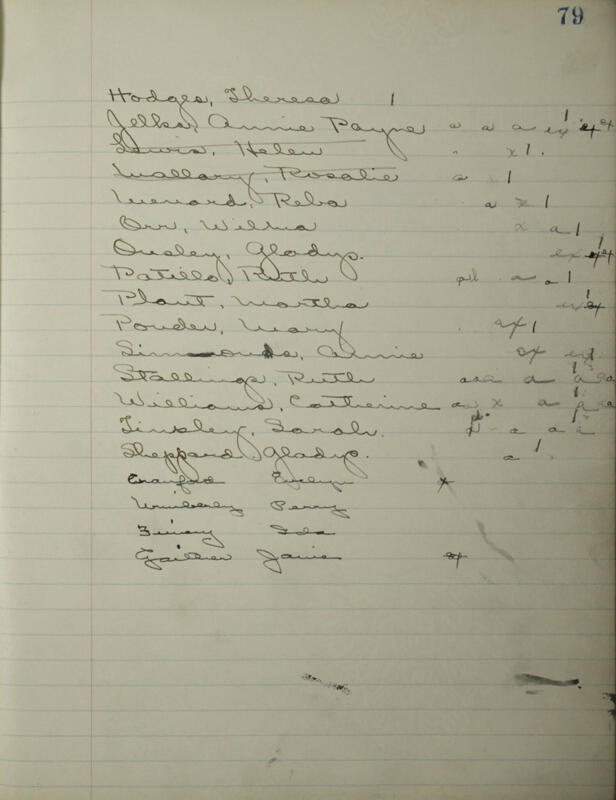 79
Hodges, Theresa 1
Jelks, Annie Payne a a a ex 1
Lewis, Helen x 1
Mallary, Rosalie a 1
Menard, Reba a x 1
Orr, Wilma x a 1
Ousley, Gladys. ex
Patillo, Ruth a a 1
Plant, Martha ex
Ponder, Mary ax 1
Simmonds, Annie ax ex 1
Stallings, Ruth aaa a a
Williams, Catherine x a a
Tinsley, Sarah. a a a
Sheppard, Gladys. a 1
Crawford Evelyn x
Wimberly Perry
Ida
Gaither Janie